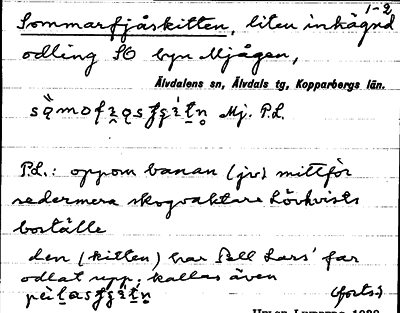 1-2
Sommarfjåskitten, liten inhägnd
odling SO byn Mjågen,
Älvdalens sn, Älvdals tg, Kopparbergs län.
Mj. P.L.
P.L.: oppom banan (jv) mittför
nedermera skogvaktare Lövkvists
boställe
den (kitten) har Pell Lars' far
odlat upp. kallas även
(forts.)